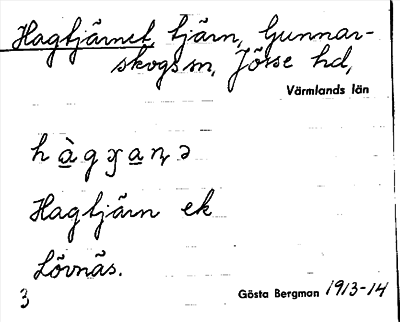 Hagtjärnet, tjärn, Gunnar-
skogs sn, Jösse hd,
Värmlands län
Hagtjärn ek
Lövnäs.
3
Gösta Bergman 1913-14